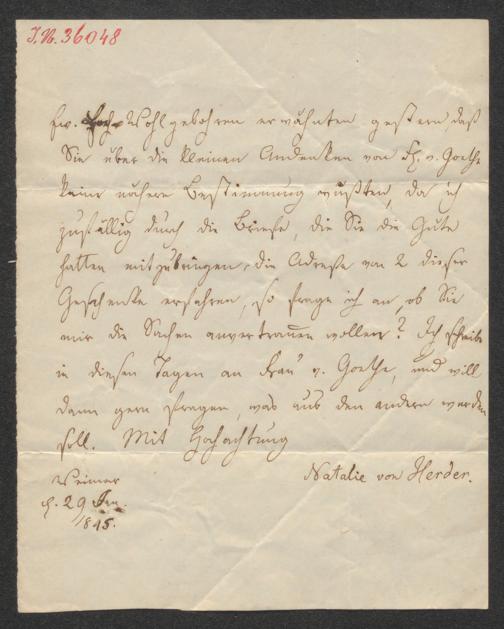 J.N. 36048
Ew. Hoch-Wohlgebohren erwähnten gestern, daß
Sie über die kleinen Andenken von Fr. v. Goethe
keine nähere Bestimmung wüßten, da ich
zufällig durch die Briefe, die Sie die Güte
hatten mitzubringen, die Adresse von 2 dieser
Geschenke erfahren, so frage ich an, ob Sie
mir die Sachen anvertrauen wollen? Ich schreibe
in diesen Tagen an Frau v. Goethe, und will
dann gern fragen, was aus den andern werden
soll. Mit Hochachtung
Natalie von Herder.
Weimar
d. 29 Jan.
1845.